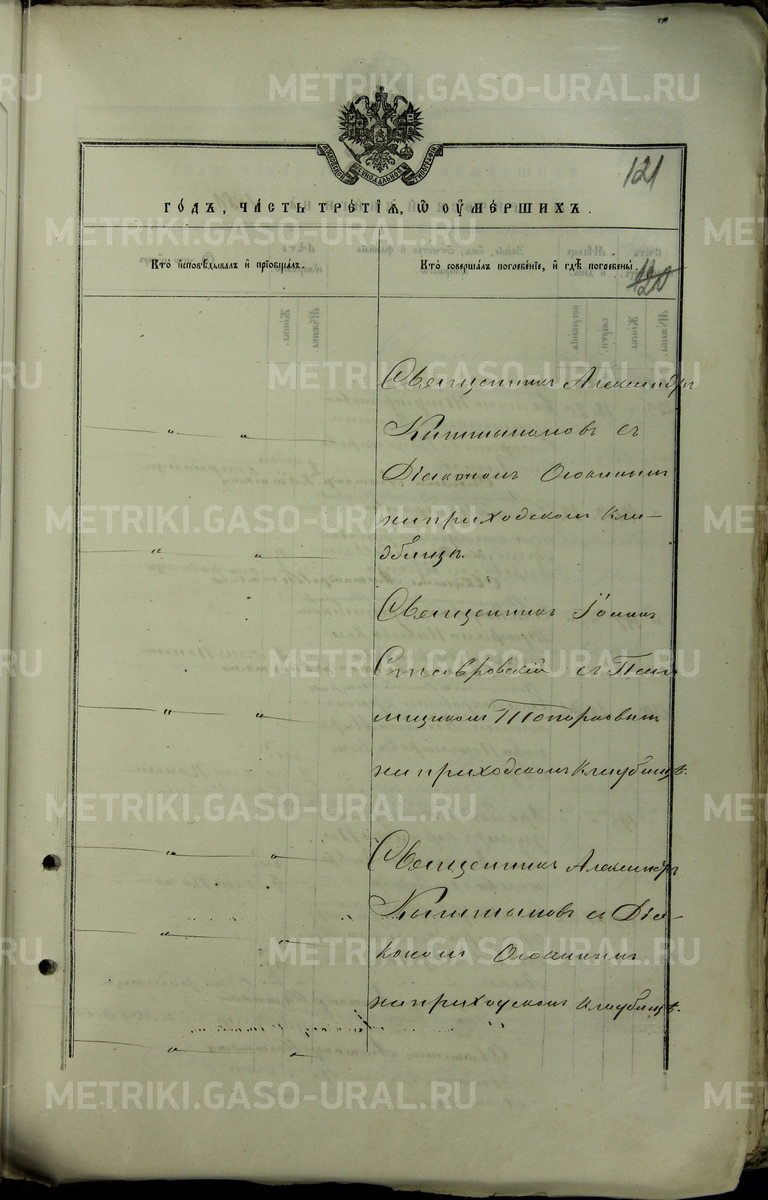 121
го́дъ, ча́сть тре́тїѧ, ѡ҆ ᲂу҆ме́ршихъ.
Кто̀ и҆сповѣ́дывалъ и҆ прїѡбща́лъ.
Кто̀ соверша́лъ погребе́нїе, и҆ гдѣ̀ погребены̀.
Священникъ Александръ
съ
Діакономъ Осокинымъ
на приходскомъ кла-
дбищѣ.
Священникъ Іоаннъ
Ставровскій съ Псал
мщикомъ Топорковымъ
на приходскомъ кладбищѣ.
Священникъ Александръ
съ Діа-
кономъ Осокинымъ
на приходскомъ кладбищѣ.
METRIKI.GASO-URAL.RU